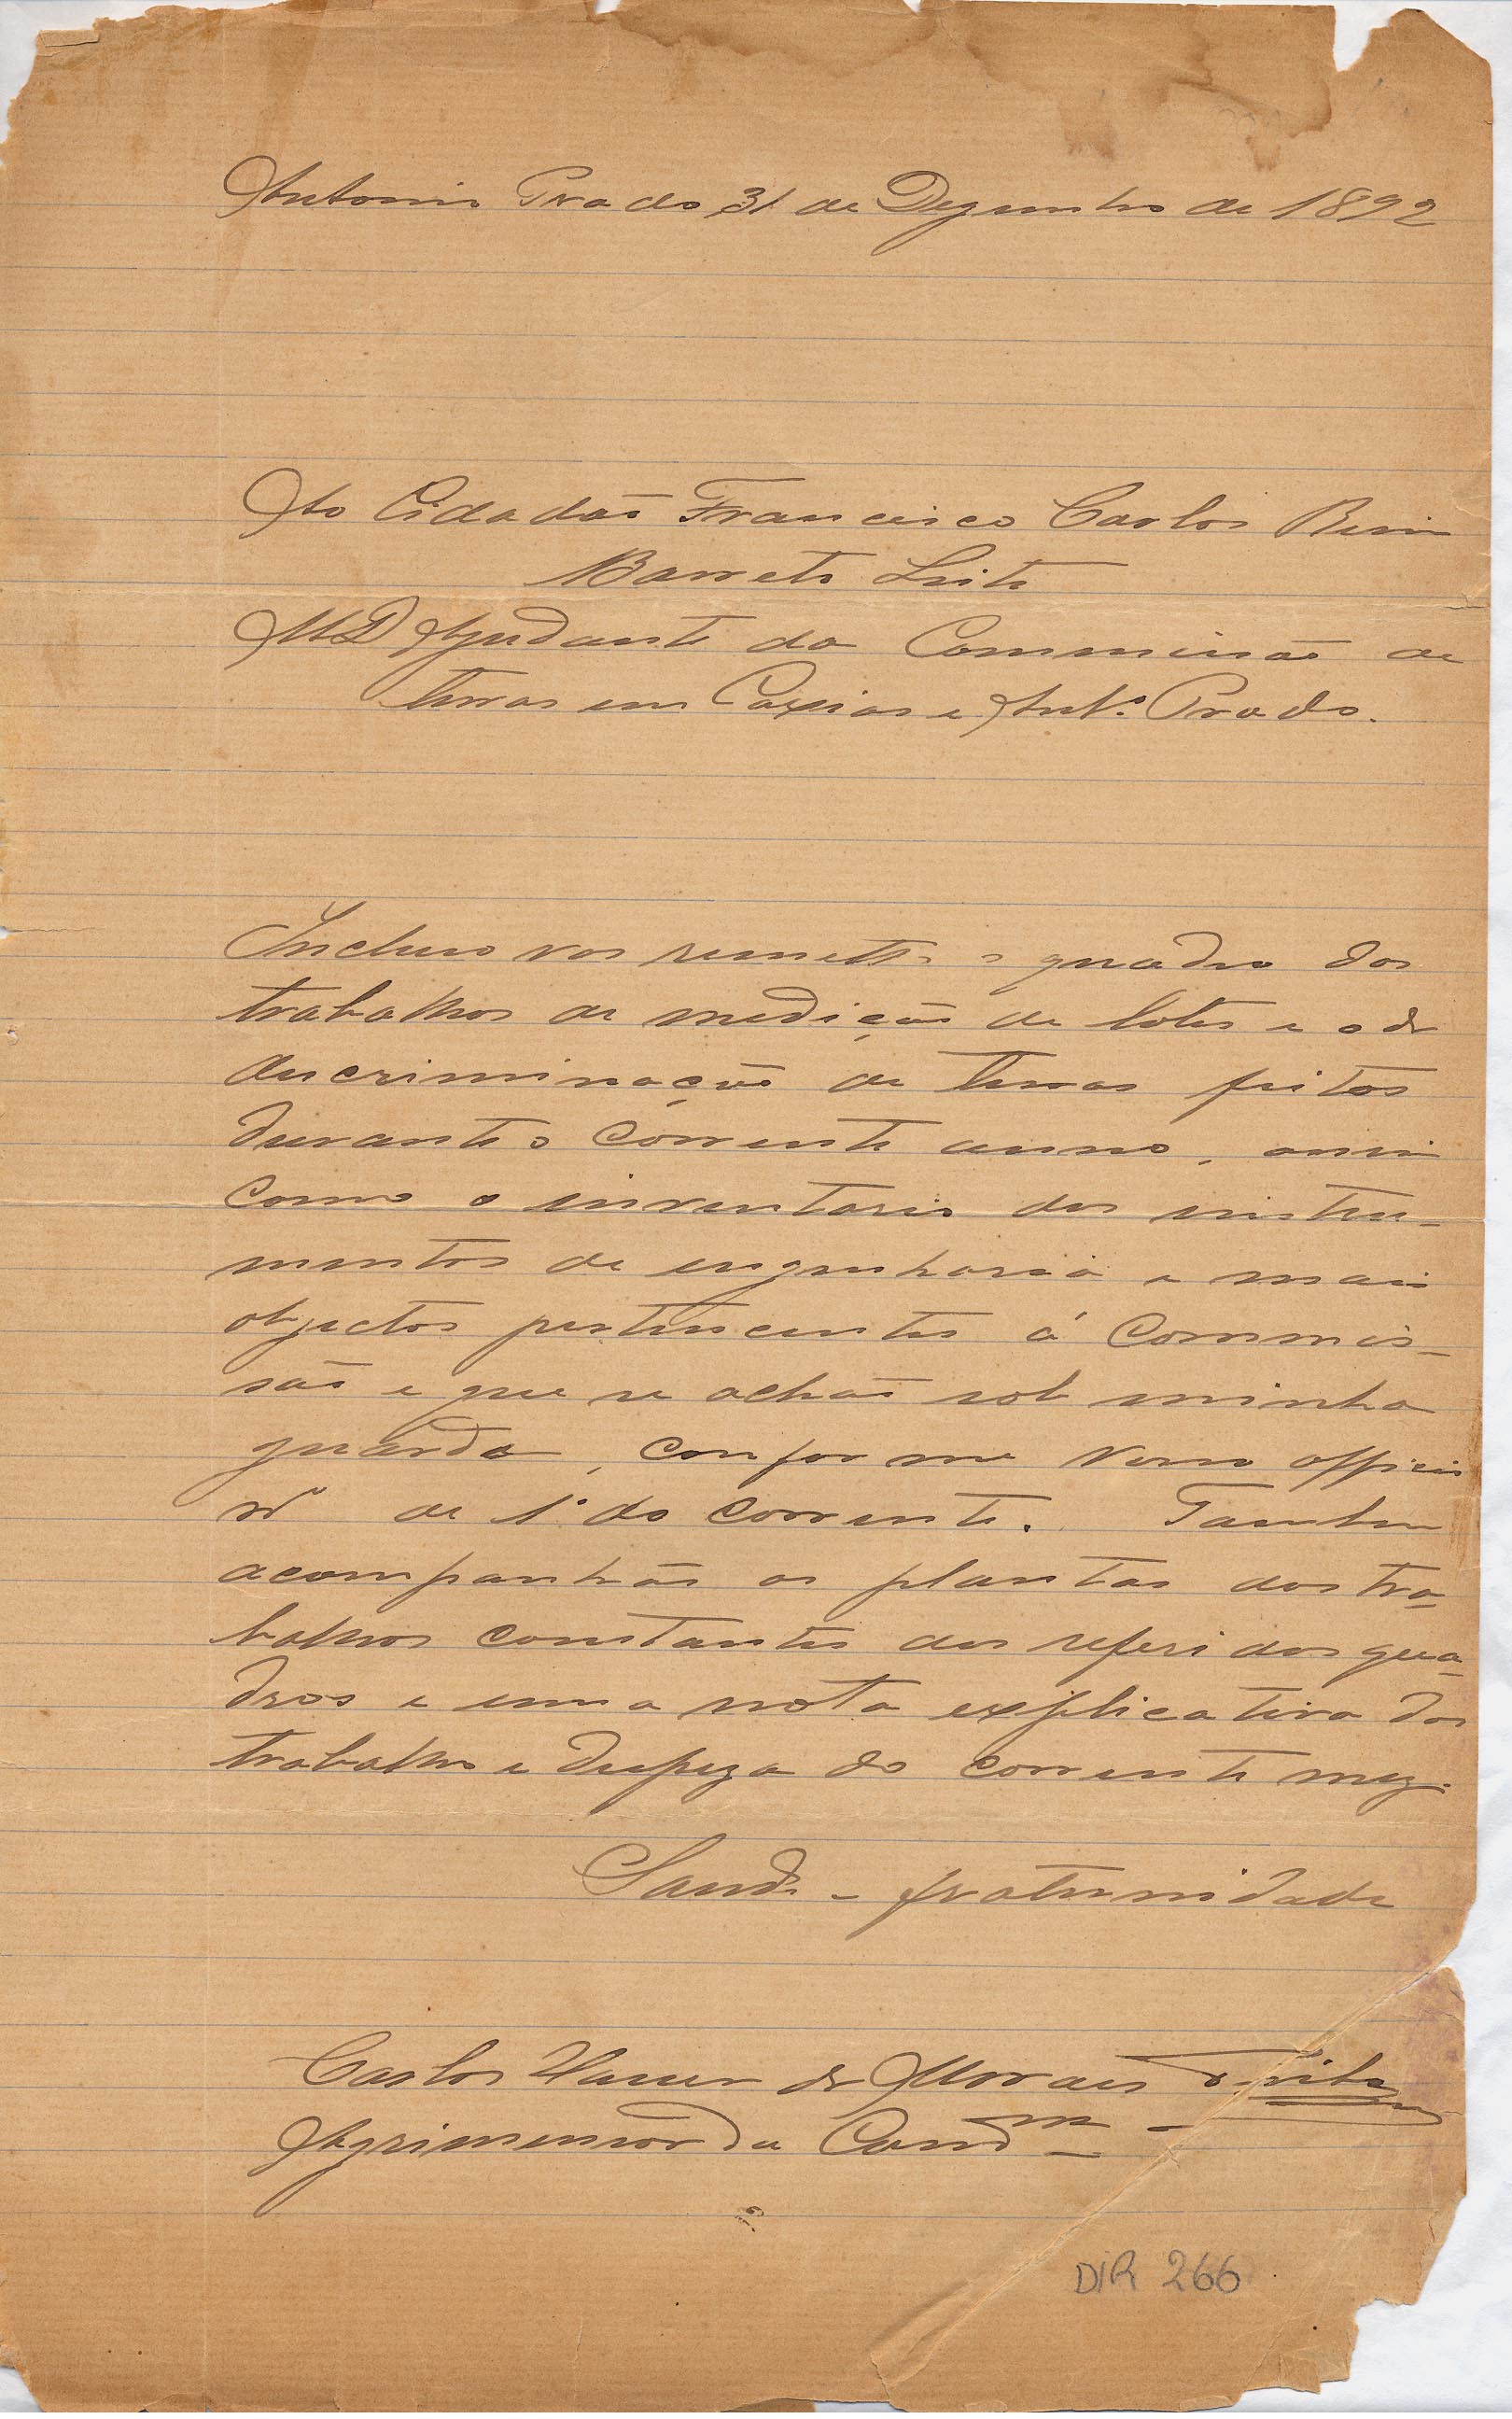 Antonio Prado 31 de Dezembro de 1892
Ao Cidadão Francisco Carlos
Barreto Leite
MD Ajudante da Commissão de
terras em Caxias e Antº. Prado.
Incluso vos remetto o quadro dos
trabalhos de medição de lotes e o de
discriminação de terras feitos
durante o corrente anno, assim
como o inventario dos instru-
mentos de engenharia e mais
objectos pertencentes á Commis-
são e que se achão sob minha
guarda, conforme vosso officio
nº de 1º do corrente. Tambem
acompanhão as plantas dos tra-
balhos constantes dos referidos qua-
dros e uma nota explicativa dos
trabalhos e despeza do corrente mez.
Saude e fraternidade
Carlos de Moraes
Agrimensor da
DIR 266